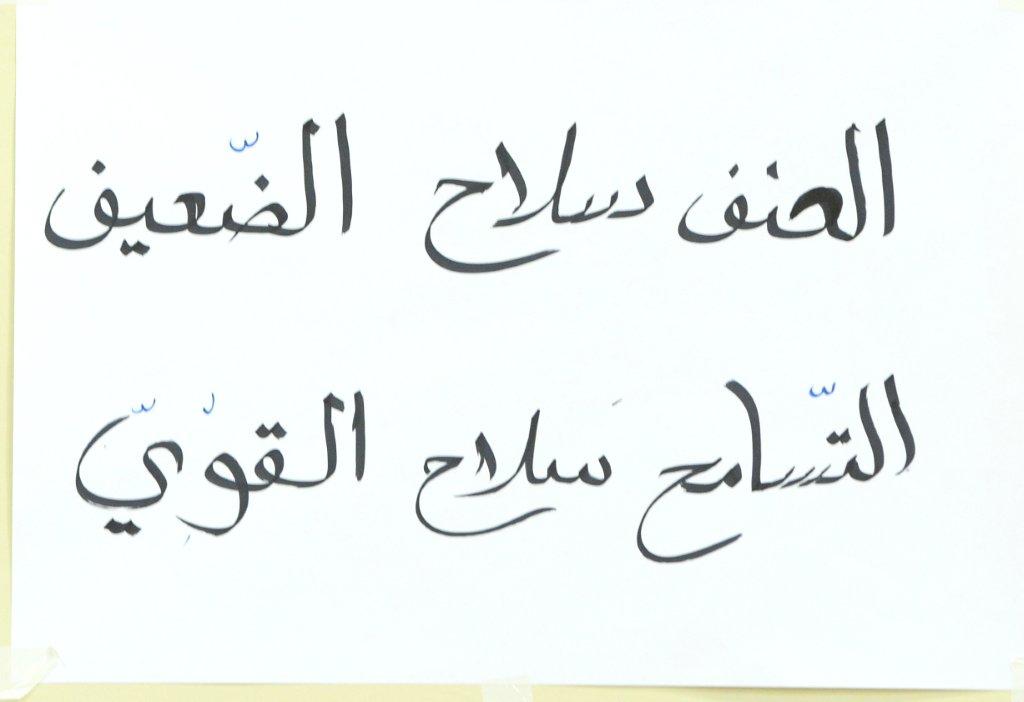 العنف سلاح الضّعيف
التّسامح سلاح القويّ